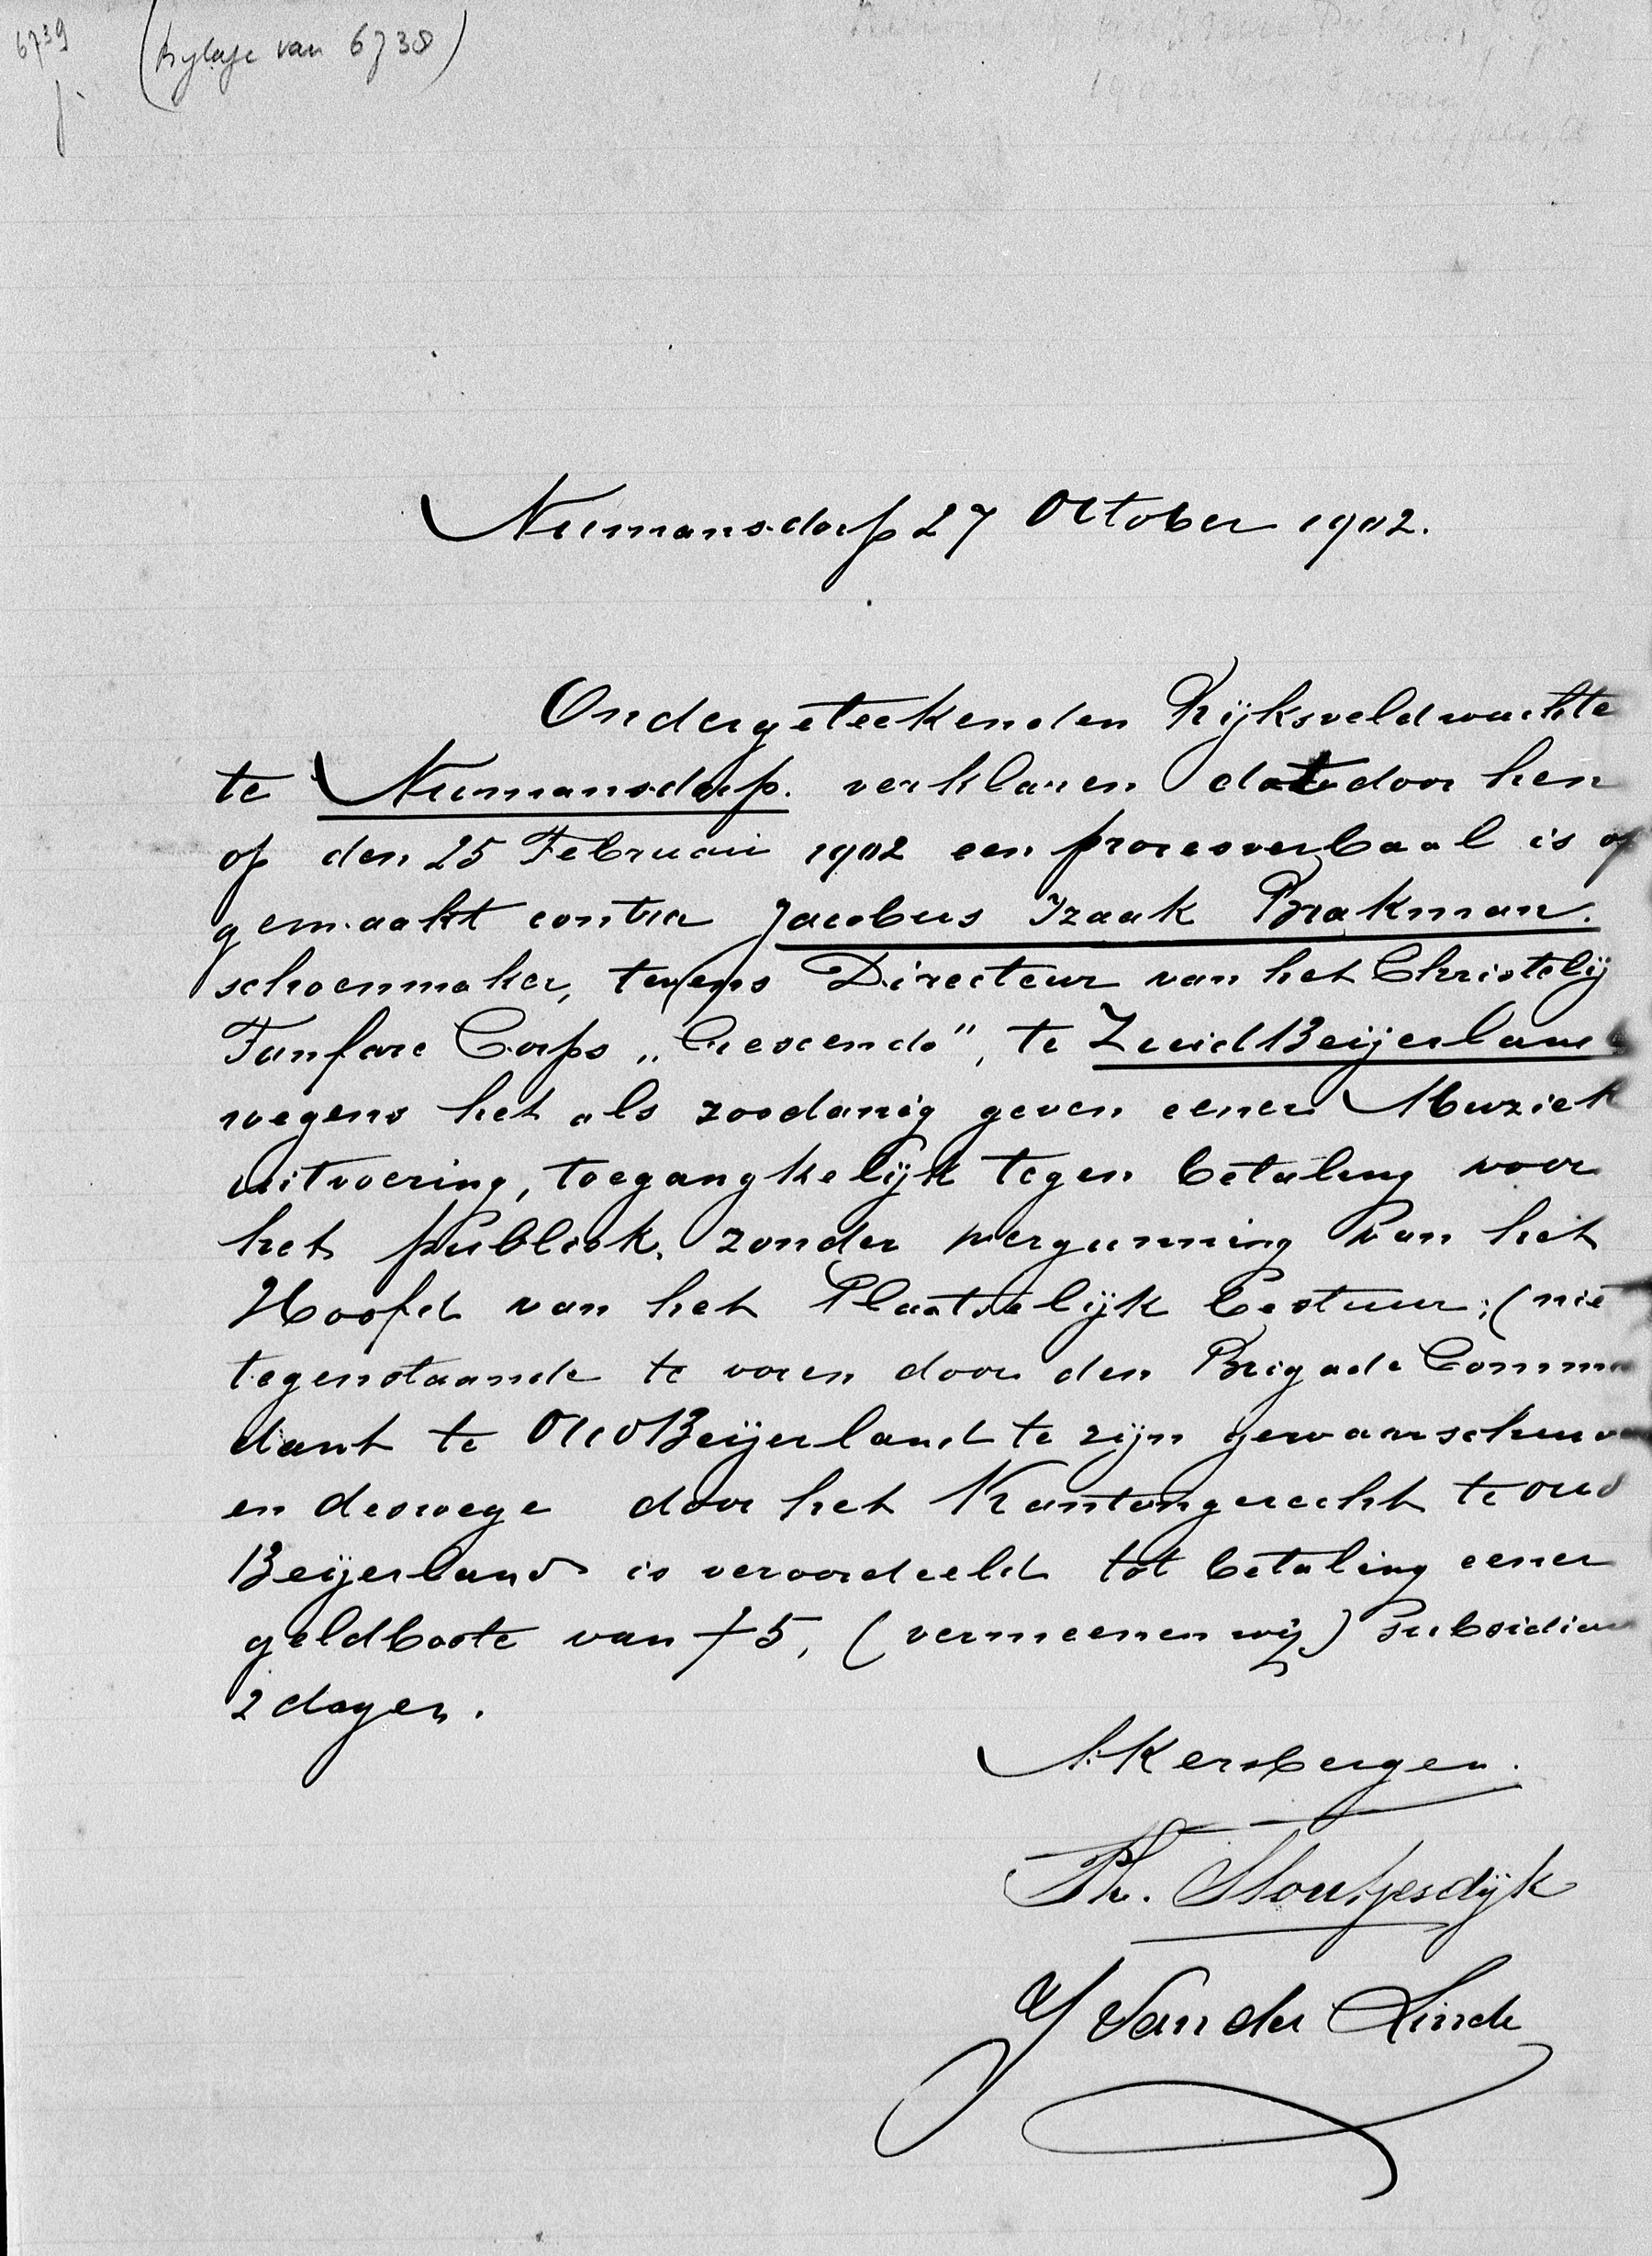 6739
(Bylage van 6738)
Numansdorp 27 October 1902.
Ondergeteekenden Rijksveldwachte
te Numansdorp. verklaren dat door hen
op den 25 Februari 1902 een procesverbaal is op
gemaakt contra Jacobus Izaak Brakman.
schoenmaker, tevens Directeur van het Christelij
Fanfare Corps „Crescendo", te ZuidBeijerland
wegens het als zoodanig geven eener Muziek
uitvoering, toegangkelijk tegen betaling voor
het publiek, zonder vergunning van het
Hoofd van het Plaatselijk Bestuur; (nie
tegenstaande te voren door den Brigade Comma
dant te OudBeijerland te zijn gewaarschuw
en deswege door het Kantongerecht te Oud
Beijerland is veroordeeld tot betaling eener
geldboete van f 5, (vermeenen wij) subsidiair
2 dagen.
A. Kersbergen.
Ph. Stoutjesdijk
J Van der Linde